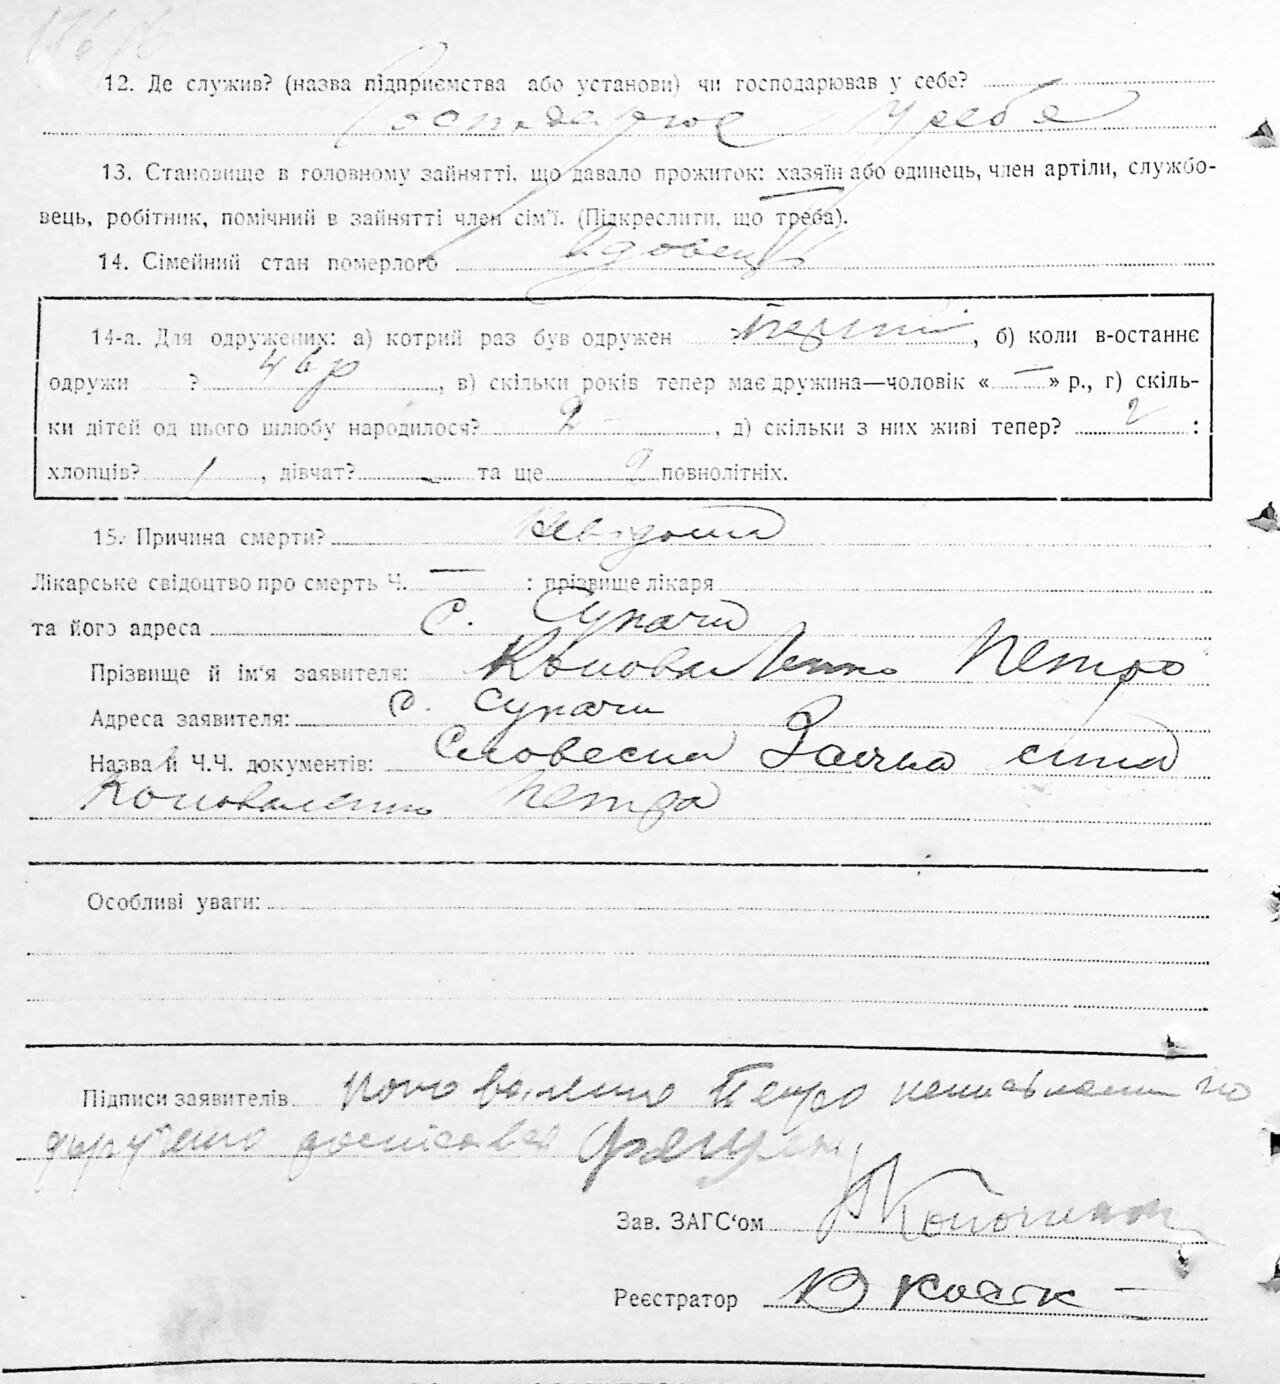 12. Де служив? (назва підприємства або установи) чи господарював у себе?
Господарює у себе
13. Становище в головному зайнятті, що давало прожиток: хазяїн або одинець, член артіли, службо-
вець, робітник, помічний в зайнятті член сім'ї. (Підкреслити, що треба).
14. Сімейний стан померлого вдовець
14-а. Для одружених: а) котрий раз був одружен перший, б) коли в-останнє
одружи ? , в) скільки років тепер має дружина—чоловік « — » р., г) скіль-
ки дітей од цього шлюбу народилося? 2 , д) скільки з них живі тепер? 2 :
хлопців? 1 , дівчат? — та ще 2 повнолітніх.
15. Причина смерти? невідома
Лікарське свідоцтво про смерть Ч. — : прізвище лікаря
та його адреса с. Супачи
Прізвище й ім'я заявителя: Коноваленко Петро
Адреса заявителя: с. Супачи
Назва й Ч.Ч. документів: Словесна Заява сина
Коноваленко Петра
Особливі уваги:
Підписи заявителів Коноваленко Петро неписьменний по
доручено
Зав. ЗАГС'ом
Реєстратор